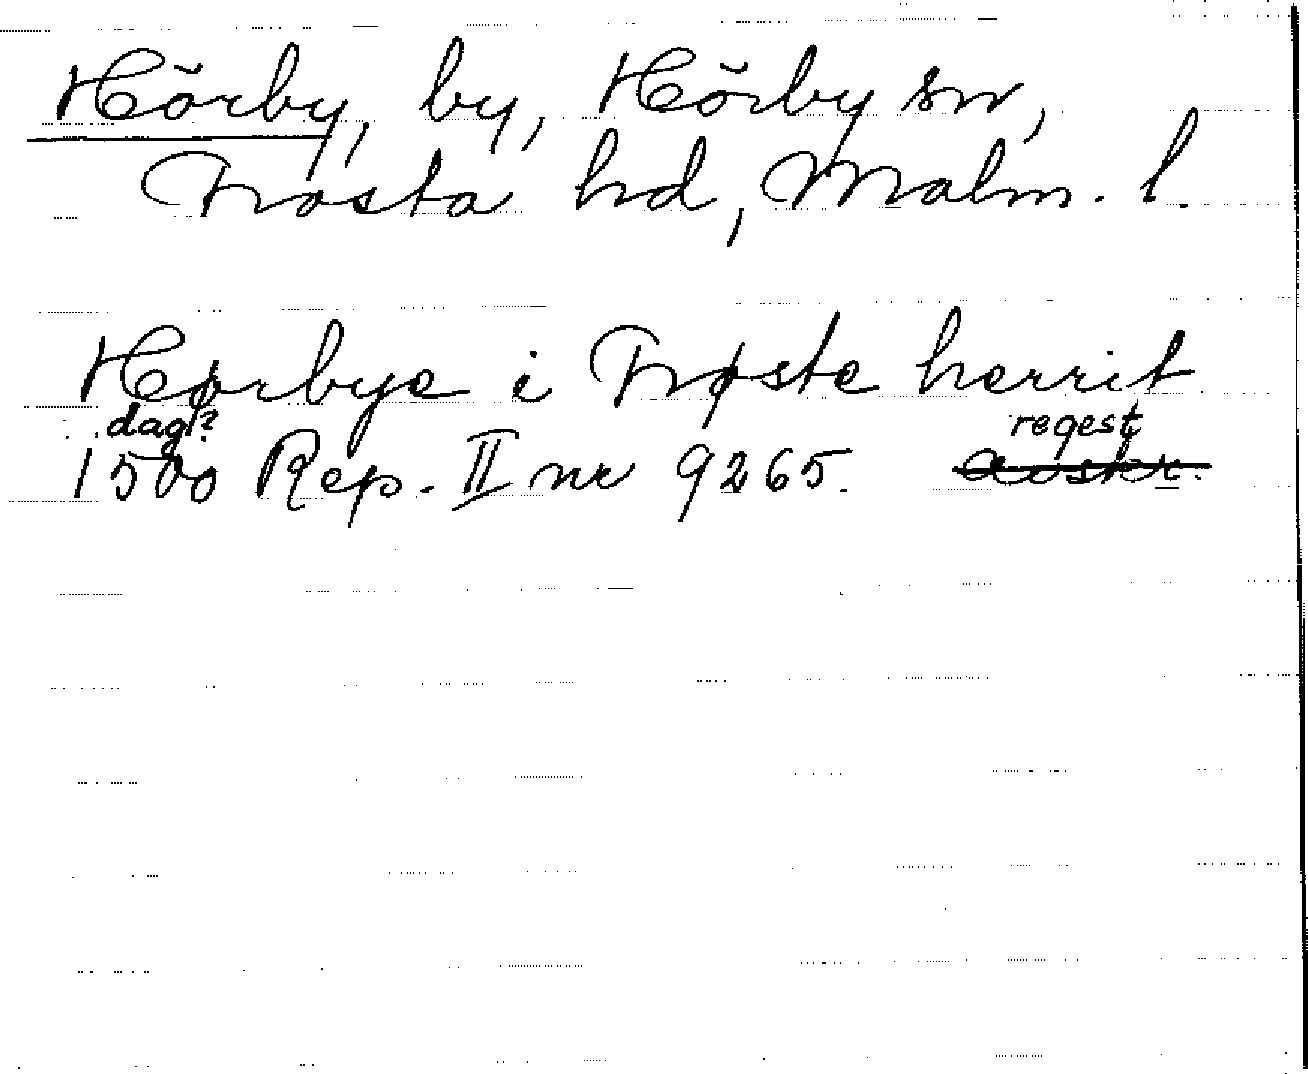 Hörby, by, Hörby sn,
Frosta hd, Malm. l.
Hørbye i Frøste herrit
dag?
regest
1500 Rep. II nr 9265. avskr.